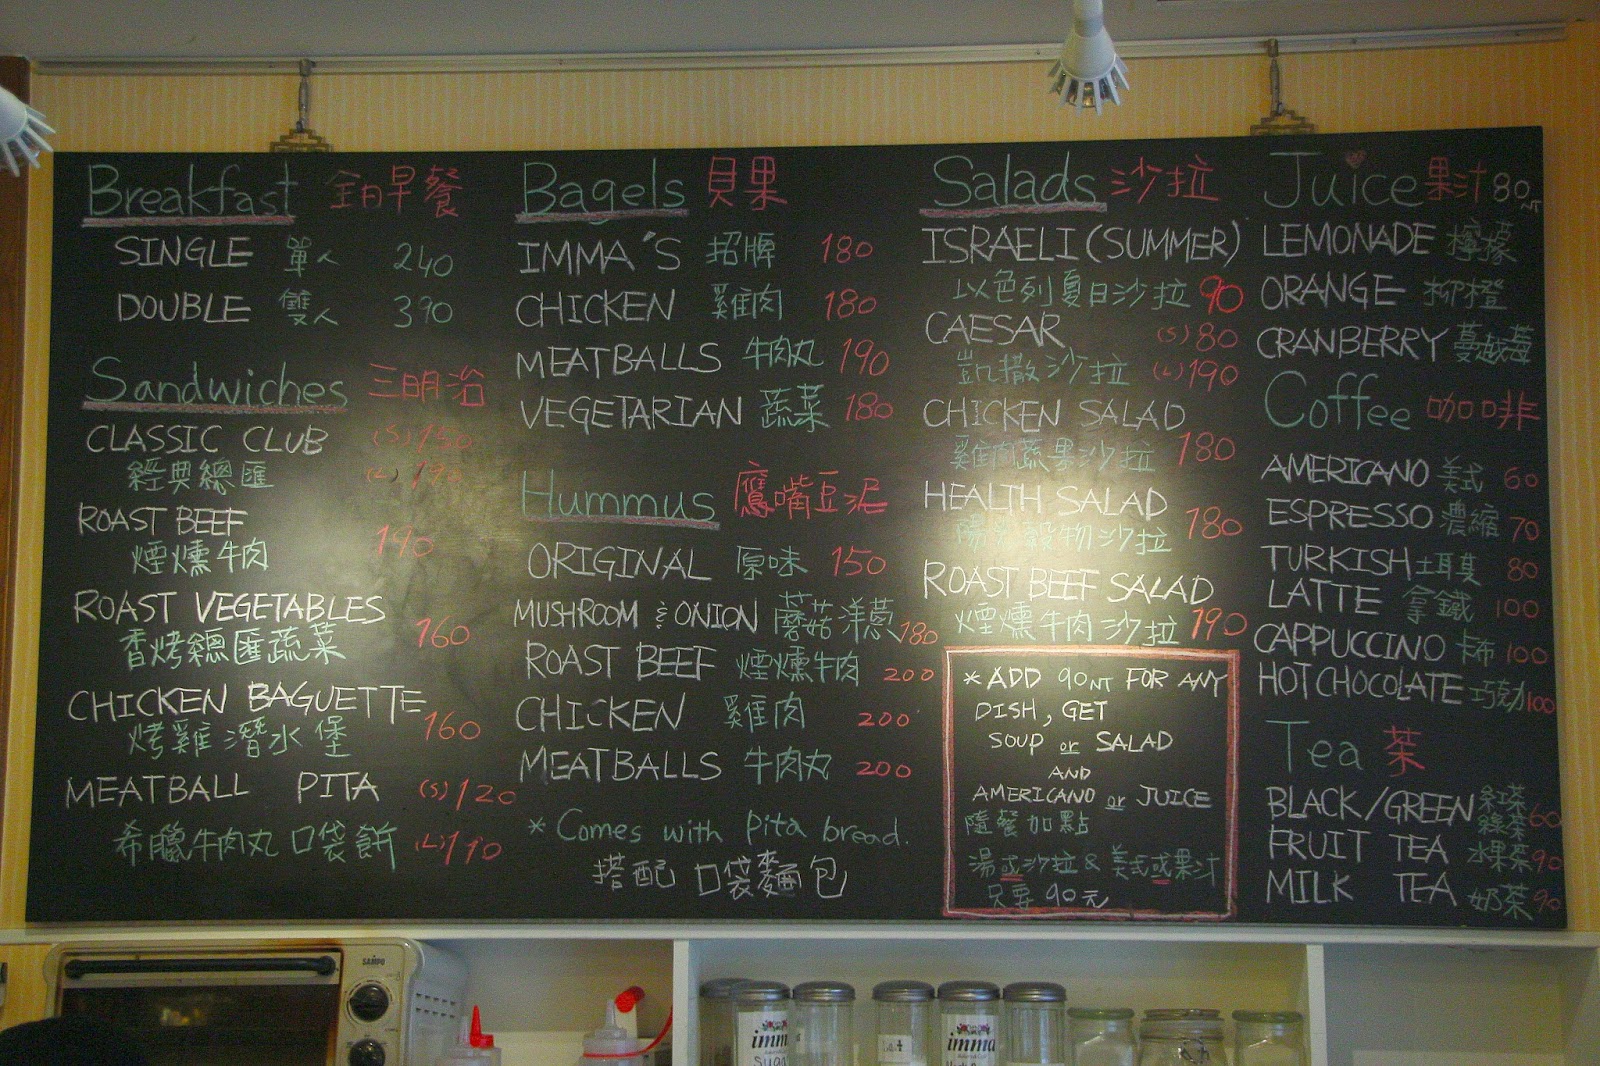 Breakfast 全日早餐
SINGLE 單人 240
DOUBLE 雙人 390
Sandwiches 三明治
CLASSIC CLUB (S) 150
經典總匯 (L) 190
ROAST BEEF
煙燻牛肉 190
ROAST VEGETABLES
香烤總匯蔬菜 160
CHICKEN BAGUETTE
烤雞潛水堡 160
MEATBALL PITA (S) 120
希臘牛肉丸口袋餅 (L) 190
Bagels 貝果
IMMA'S 招牌 180
CHICKEN 雞肉 180
MEATBALLS 牛肉丸 190
VEGETARIAN 蔬菜 180
Hummus 鷹嘴豆泥
ORIGINAL 原味 150
MUSHROOM & ONION 蘑菇洋蔥 180
ROAST BEEF 煙燻牛肉 200
CHICKEN 雞肉 200
MEATBALLS 牛肉丸 200
* Comes with pita bread.
搭配 口袋麵包
Salads 沙拉
ISRAELI (SUMMER)
以色列夏日沙拉 90
CAESAR (S) 80
凱撒沙拉 (L) 190
CHICKEN SALAD
雞肉蔬果沙拉 180
HEALTH SALAD
陽光穀物沙拉 180
ROAST BEEF SALAD
煙燻牛肉沙拉 190
* ADD 90NT FOR ANY
DISH, GET
SOUP or SALAD
AND
AMERICANO or JUICE
隨餐加點
湯或沙拉 & 美式或果汁
只要 90元
Juice 果汁 80NT
LEMONADE 檸檬
ORANGE 柳橙
CRANBERRY 蔓越莓
Coffee 咖啡
AMERICANO 美式 60
ESPRESSO 濃縮 70
TURKISH 土耳其 80
LATTE 拿鐵 100
CAPPUCCINO 卡布 100
HOT CHOCOLATE 巧克力 100
Tea 茶
BLACK/GREEN 紅茶 綠茶 60
FRUIT TEA 水果茶 90
MILK TEA 奶茶 90
SAMPO
imma
sugar
imma